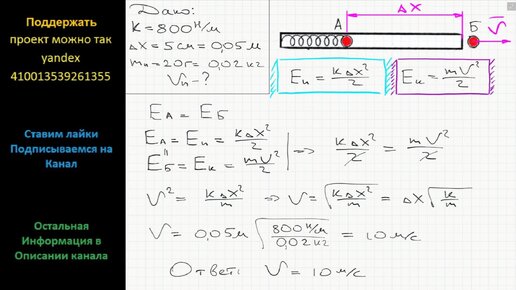 Поддержать
проект можно так
yandex
410013539261355
Ставим лайки
Подписываемся на
Канал
Остальная
Информация в
Описании канала
Дано:
k = 800 Н/м
Δx = 5 см = 0,05 м
mп = 20 г = 0,02 кг
Vп - ?
А Δx Б V
Eп = kΔx²/2 Eк = mV²/2
EА = EБ
EА = Eп = kΔx²/2
EБ = Eк = mV²/2 => kΔx²/2 = mV²/2
V² = kΔx²/m => V = √(kΔx²/m) = Δx√(k/m)
V = 0,05 м √(800 Н/м / 0,02 кг) = 10 м/с
Ответ: V = 10 м/с